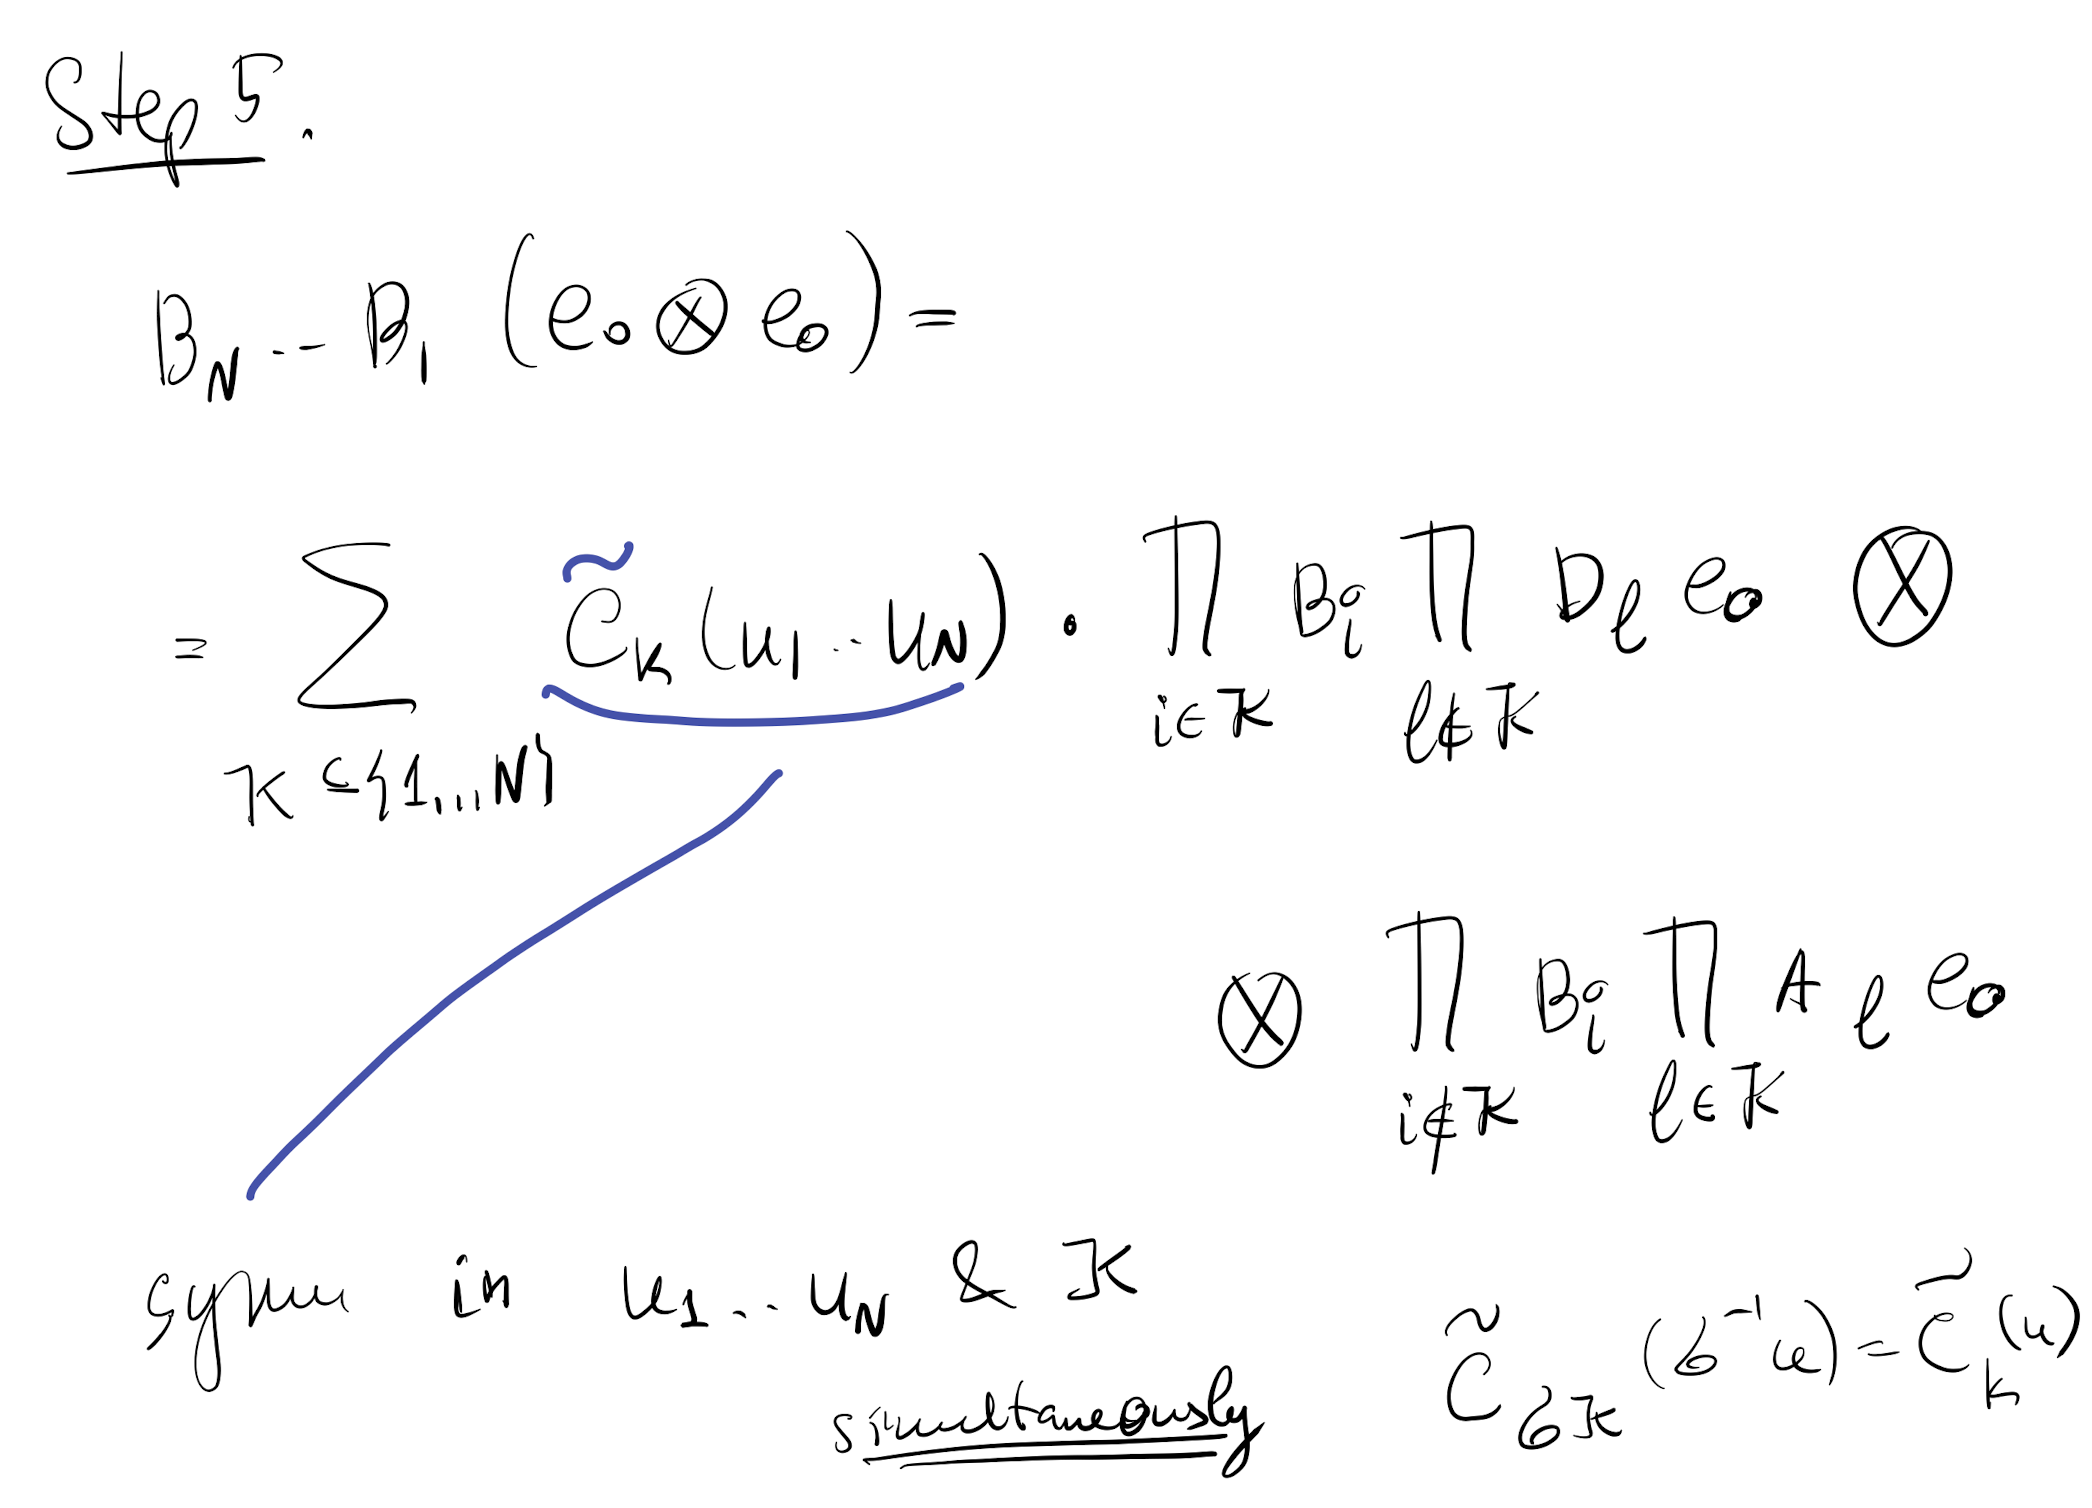 Step 5.
B_N ... B_1 (e_0 ⊗ e_0) =
= ∑_{K ⊆ {1,...N}} C̃_K (u_1 .. u_N) · ∏_{i∈K} B_i ∏_{l∉K} D_l e_0 ⊗
⊗ ∏_{i∉K} B_i ∏_{l∈K} A_l e_0
symm in u_1 ... u_N & K
simultaneously
C̃_{σK} (σ^{-1} u) = C̃_K (u)